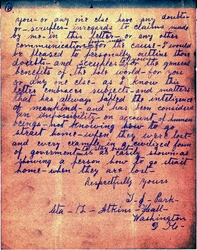 you - or any one else have any doubts -
or - scruples - in regards to claims made
by me - in this letter - or any other
communications - for the cause - I would
be pleased to personally
doubts - and scruples - for the general
benefits of the hole world - for you
or any one else - as I know this
letter embraces subjects - and matters
that has always baffled the inteligence
of mankind - and has been considered
an impossibility - on account of human
beings - not knowing how to go
strait home - when they were lost -
and every example in a civilized form
of government is as easily showed as
showing a person how to go strait
home - when they are lost -
Respectfully yours
T. J. Park -
Sta - "J" - Seattle -
Washington